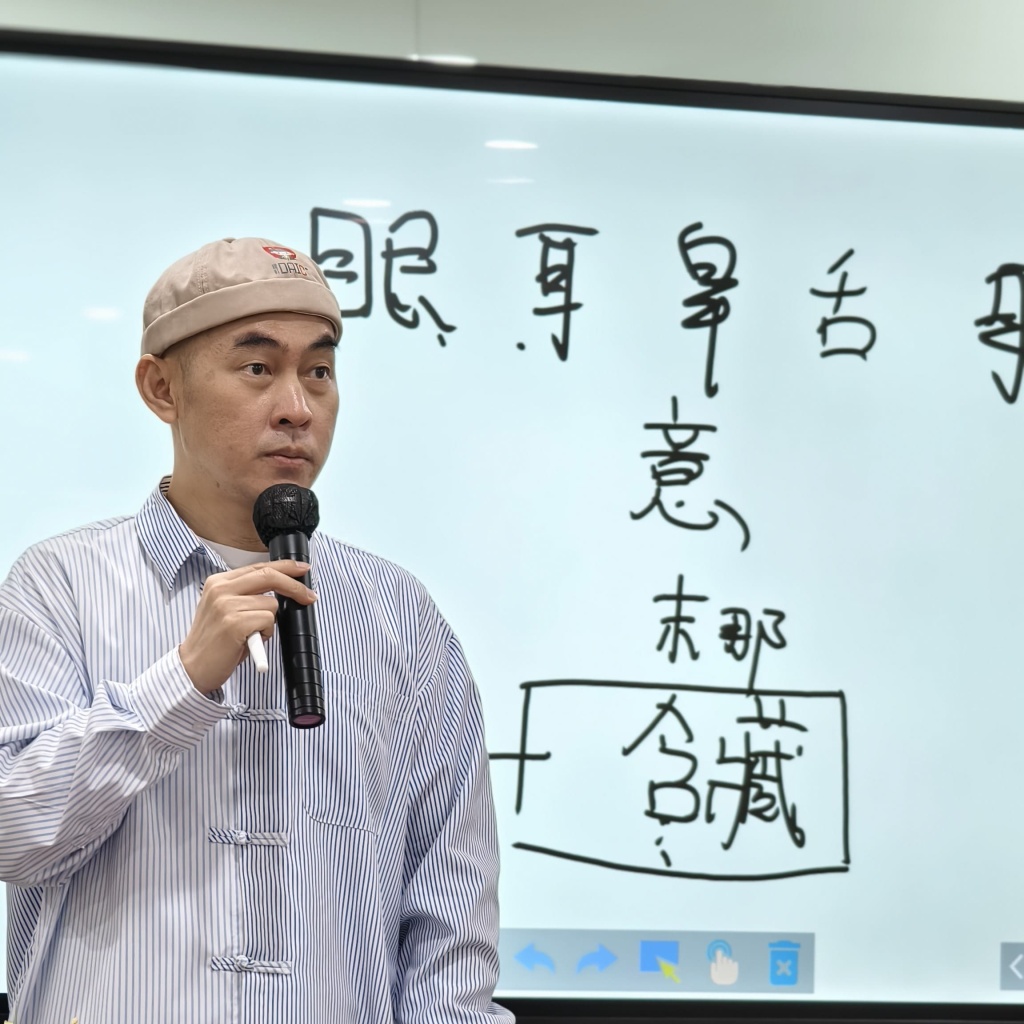 眼 耳 鼻 舌 身
意
末那
含藏